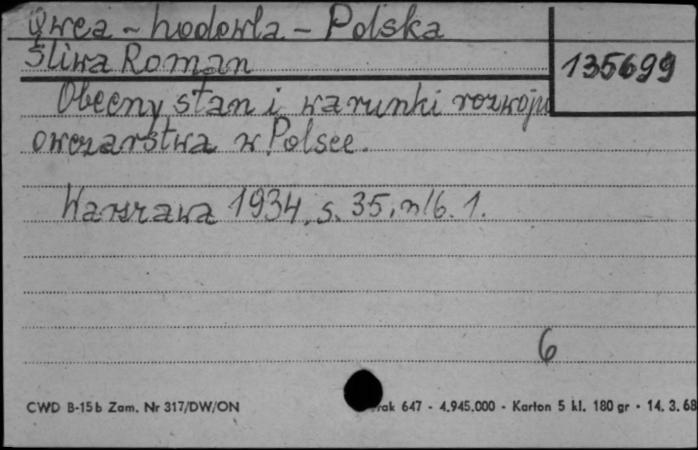 Owca - hodowla - Polska
Śliwa Roman
135699
Obecny stan i warunki rozwoju
owczarstwa w Polsce.
Warszawa 1934, s. 35, nlb. 1.
6
CWD B-15b Zam. Nr 317/DW/ON
rak 647 - 4.945.000 - Karton 5 kl. 180 gr - 14. 3. 68